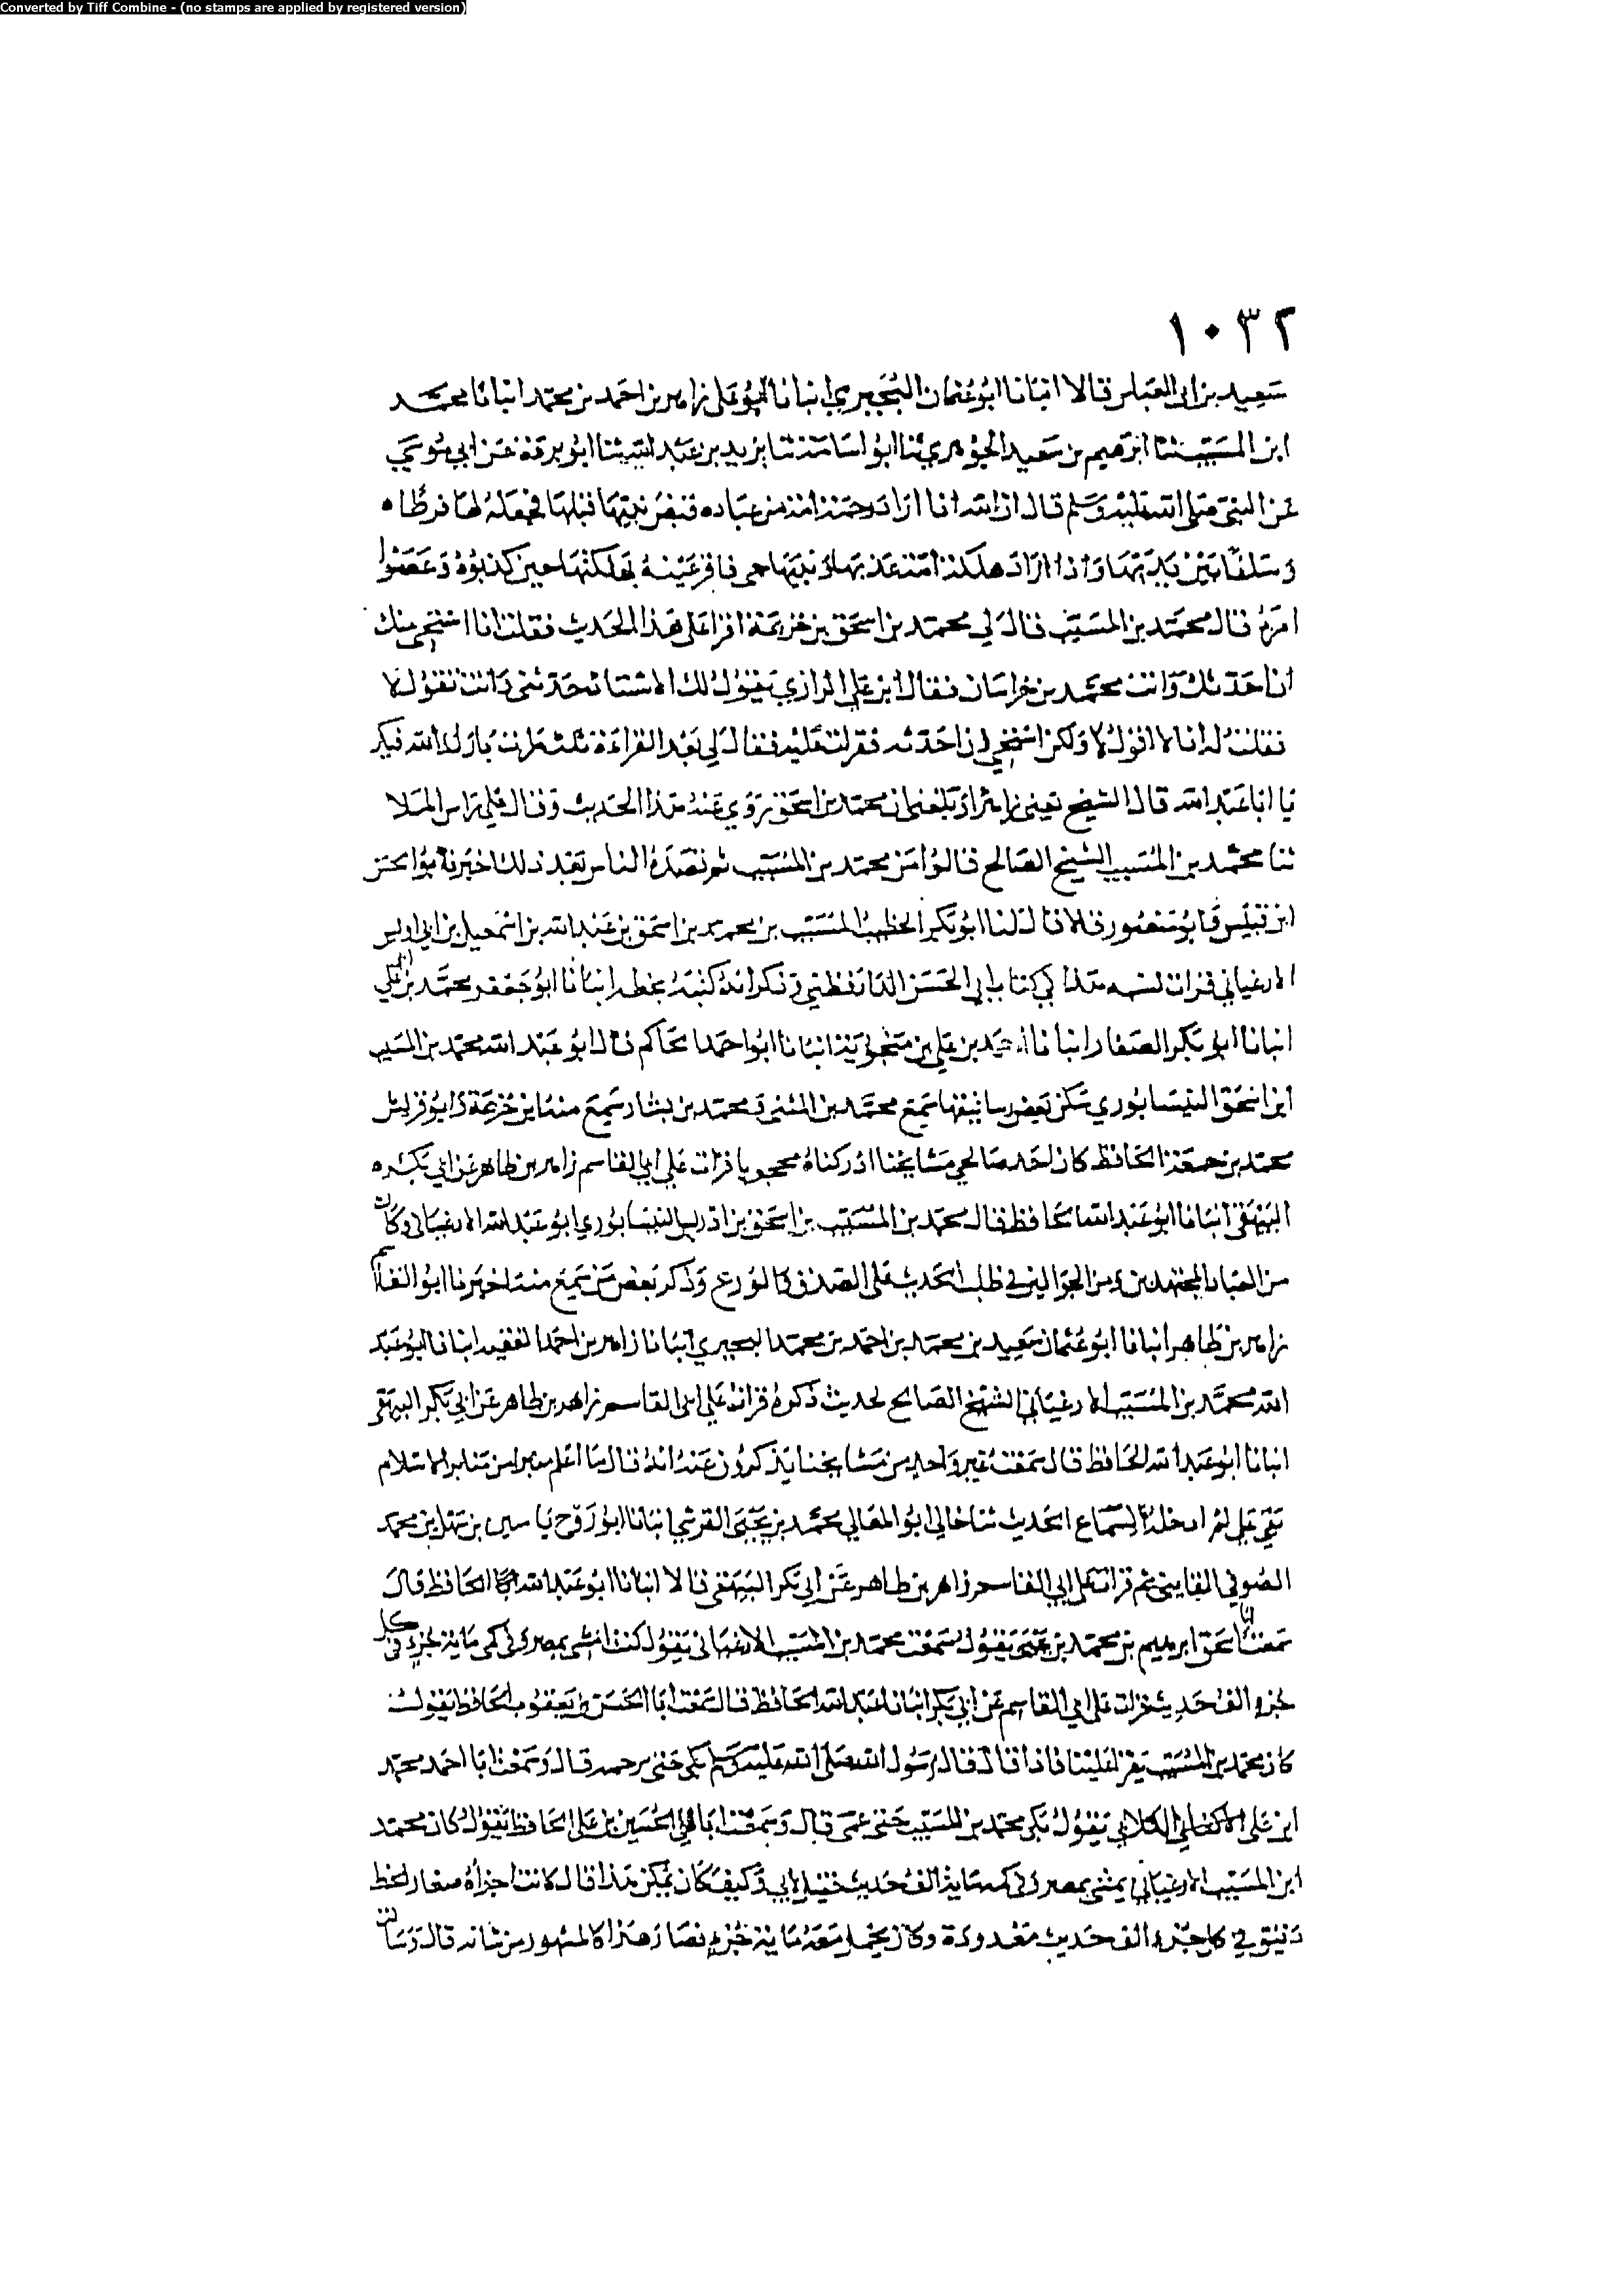 Converted by Tiff Combine - (no stamps are applied by registered version)
١٠٣٢
سعيد بن ابى العباس قالا انبانا ابو عثمان البحيري انبانا ابو على زاهر بن احمد بن محمد انبانا محمد
ابن المسيب ثنا ابرهيم بن سعيد الجوهري ثنا ابو اسامة ثنا بريد بن عبد الله ثنا ابو بردة عن ابي موسى
عن النبي صلى الله عليه وسلم قال ان الله اذا اراد رحمة امة من عباده قبض نبيها قبلها فجعله لها فرطا
وسلفا بين يديها واذا اراد هلكة امة عذبها ونبيها حى فاقر عينه بهلكتها حين كذبوه وعصوا
امره قال محمد بن المسيب قال لي محمد بن اسحق بن خزيمة اقرا على هذا الحديث فقلت انا استحى منك
ان احدثك وانت محمد بن خراسان فقال ابن على الرازي يقول لك الاستاذ حدثنى وانت تقول لا
فقلت له انا لا اقول لا ولكن استحى ان احدثه فقرات عليه فقال لي بعد القراءة ثلث مرات بارك الله فيك
يا ابا عبد الله قال الشيخ يعنى زاهرا وبلغنى ان محمد بن اسحق روي عنه هذا الحديث وقال على راس الملا
ثنا محمد بن المسيب الشيخ الصالح فقالوا من محمد بن المسيب ثم قصده الناس بعد ذلك اخبرنا ابو الحسن
ابن قبيس وابو منصور قالا قال لنا ابو بكر الخطيب المسيب بن محمد بن اسحق بن عبد الله بن اسمعيل بن ابي اويس
الارغياني قرات نسبه هذا في كتاب ابي الحسن الدارقطني وذكر انه كتبه بخطه انبانا ابو جعفر محمد بن ابى على
انبانا ابو بكر الصفار انبانا احمد بن علي بن منجويه انبانا ابو احمد الحاكم قال ابو عبد الله محمد بن المسيب
ابن اسحق النيسابوري سكن بعض رساتيقها سمع محمد بن المثنى ومحمد بن بشار سمع منه ابن خزيمة وابو قريش
محمد بن جمعة الحافظ كان احد صالحي مشايخنا ادركناه محجوبا قرات على ابي القاسم زاهر بن طاهر عن ابي بكر
البيهقى انبانا ابو عبد الله الحافظ قال محمد بن المسيب بن اسحق بن ادريس النيسابوري ابو عبد الله الارغيانى وكان
من العباد المجتهدين ومن الجوالين في طلب الحديث على الصدق والورع وذكر بعض من سمع منه اخبرنا ابو القاسم
زاهر بن طاهر انبانا ابو عثمان سعيد بن محمد بن احمد بن محمد البحيري انبانا زاهر بن احمد الفقيه انبانا ابو عبد
الله محمد بن المسيب الارغياني الشيخ الصالح بحديث ذكره قرات على ابى القاسم زاهر بن طاهر عن ابي بكر البيهقى
انبانا ابو عبد الله الحافظ قال سمعت غير واحد من مشايخنا يذكرون عنه انه قال ما اعلم منبرا من منابر الاسلام
بقي على لم ادخله لسماع الحديث ثنا خالي ابو المعالي محمد بن يحيى القرشي انبانا ابو روح ياسين بن سهل بن محمد
الصوفي القايني ثم قرات على ابي القاسم زاهر بن طاهر عن ابي بكر البيهقى قالا انبانا ابو عبد الله الحافظ قال
سمعت ابا اسحق ابرهيم بن محمد بن يحيى يقول سمعت محمد بن المسيب الارغيانى يقول كنت امشى بمصر وفي كمى ماية جزء في كل
جزء الف حديث قرات على ابي القاسم عن ابي بكر انبانا ابو عبد الله الحافظ قال سمعت ابا الحسن بن يعقوب الحافظ يقول
كان محمد بن المسيب يقرا علينا فاذا قال قال رسول الله صلى الله عليه وسلم بكى حتى نرحمه قال وسمعت ابا احمد محمد
ابن على الكلابي يقول بكى محمد بن المسيب حتى عمى قال وسمعت ابا على الحسين بن على الحافظ يقول كان محمد
ابن المسيب الارغياني يمشى بمصر وفي كمه ماية الف حديث فقيل لابي على وكيف كان يمكن هذا قال كانت اجزاؤه صغار الخط
دقيق في كل جزء الف حديث معدودة وكان يحمل معه ماية جزء فصار هذا كالمشهور من شانه قال وسالت